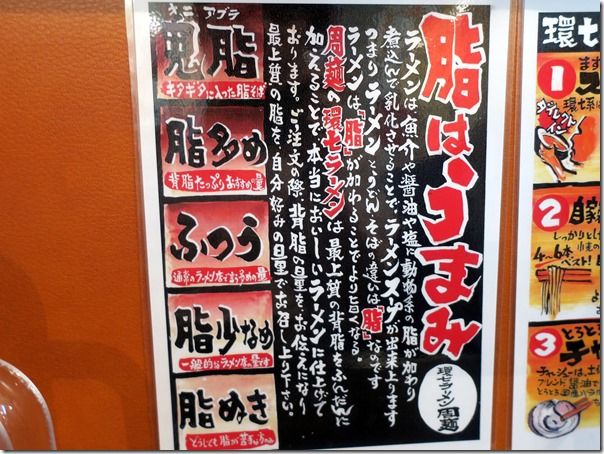 脂はうまみ
ラーメンは魚介や醤油や塩に動物系の脂が加わり
煮込んで乳化させることで、ラーメンスープが出来上ります
つまりラーメンとうどん・そばの違いは『脂』なのです
ラーメンは、『脂』が加わることでより旨くなる。
周麺の環七ラーメンは最上質の背脂をふんだんに
加えることで本当においしいラーメンに仕上げて
おります。ご注文の際、背脂の量をお伝えになり
最上質の脂を、自分好みの量でお召し上り下さい。
環七ラーメン周麺
オニ アブラ
鬼脂
ギタギタに入った脂そば
脂多め
背脂たっぷりおすすめの量
ふつう
通常のラーメン店で言う多めの量
脂少なめ
一般的なラーメン店の量です
脂ぬき
どうしても脂が苦手な方のみ
環七
1
ダイレクトイン
2
自家
しっかりと
4~6本
ベスト!
3
とろとろ
チャ
チャーシューは、
ブレンド醤油で
とろとろ